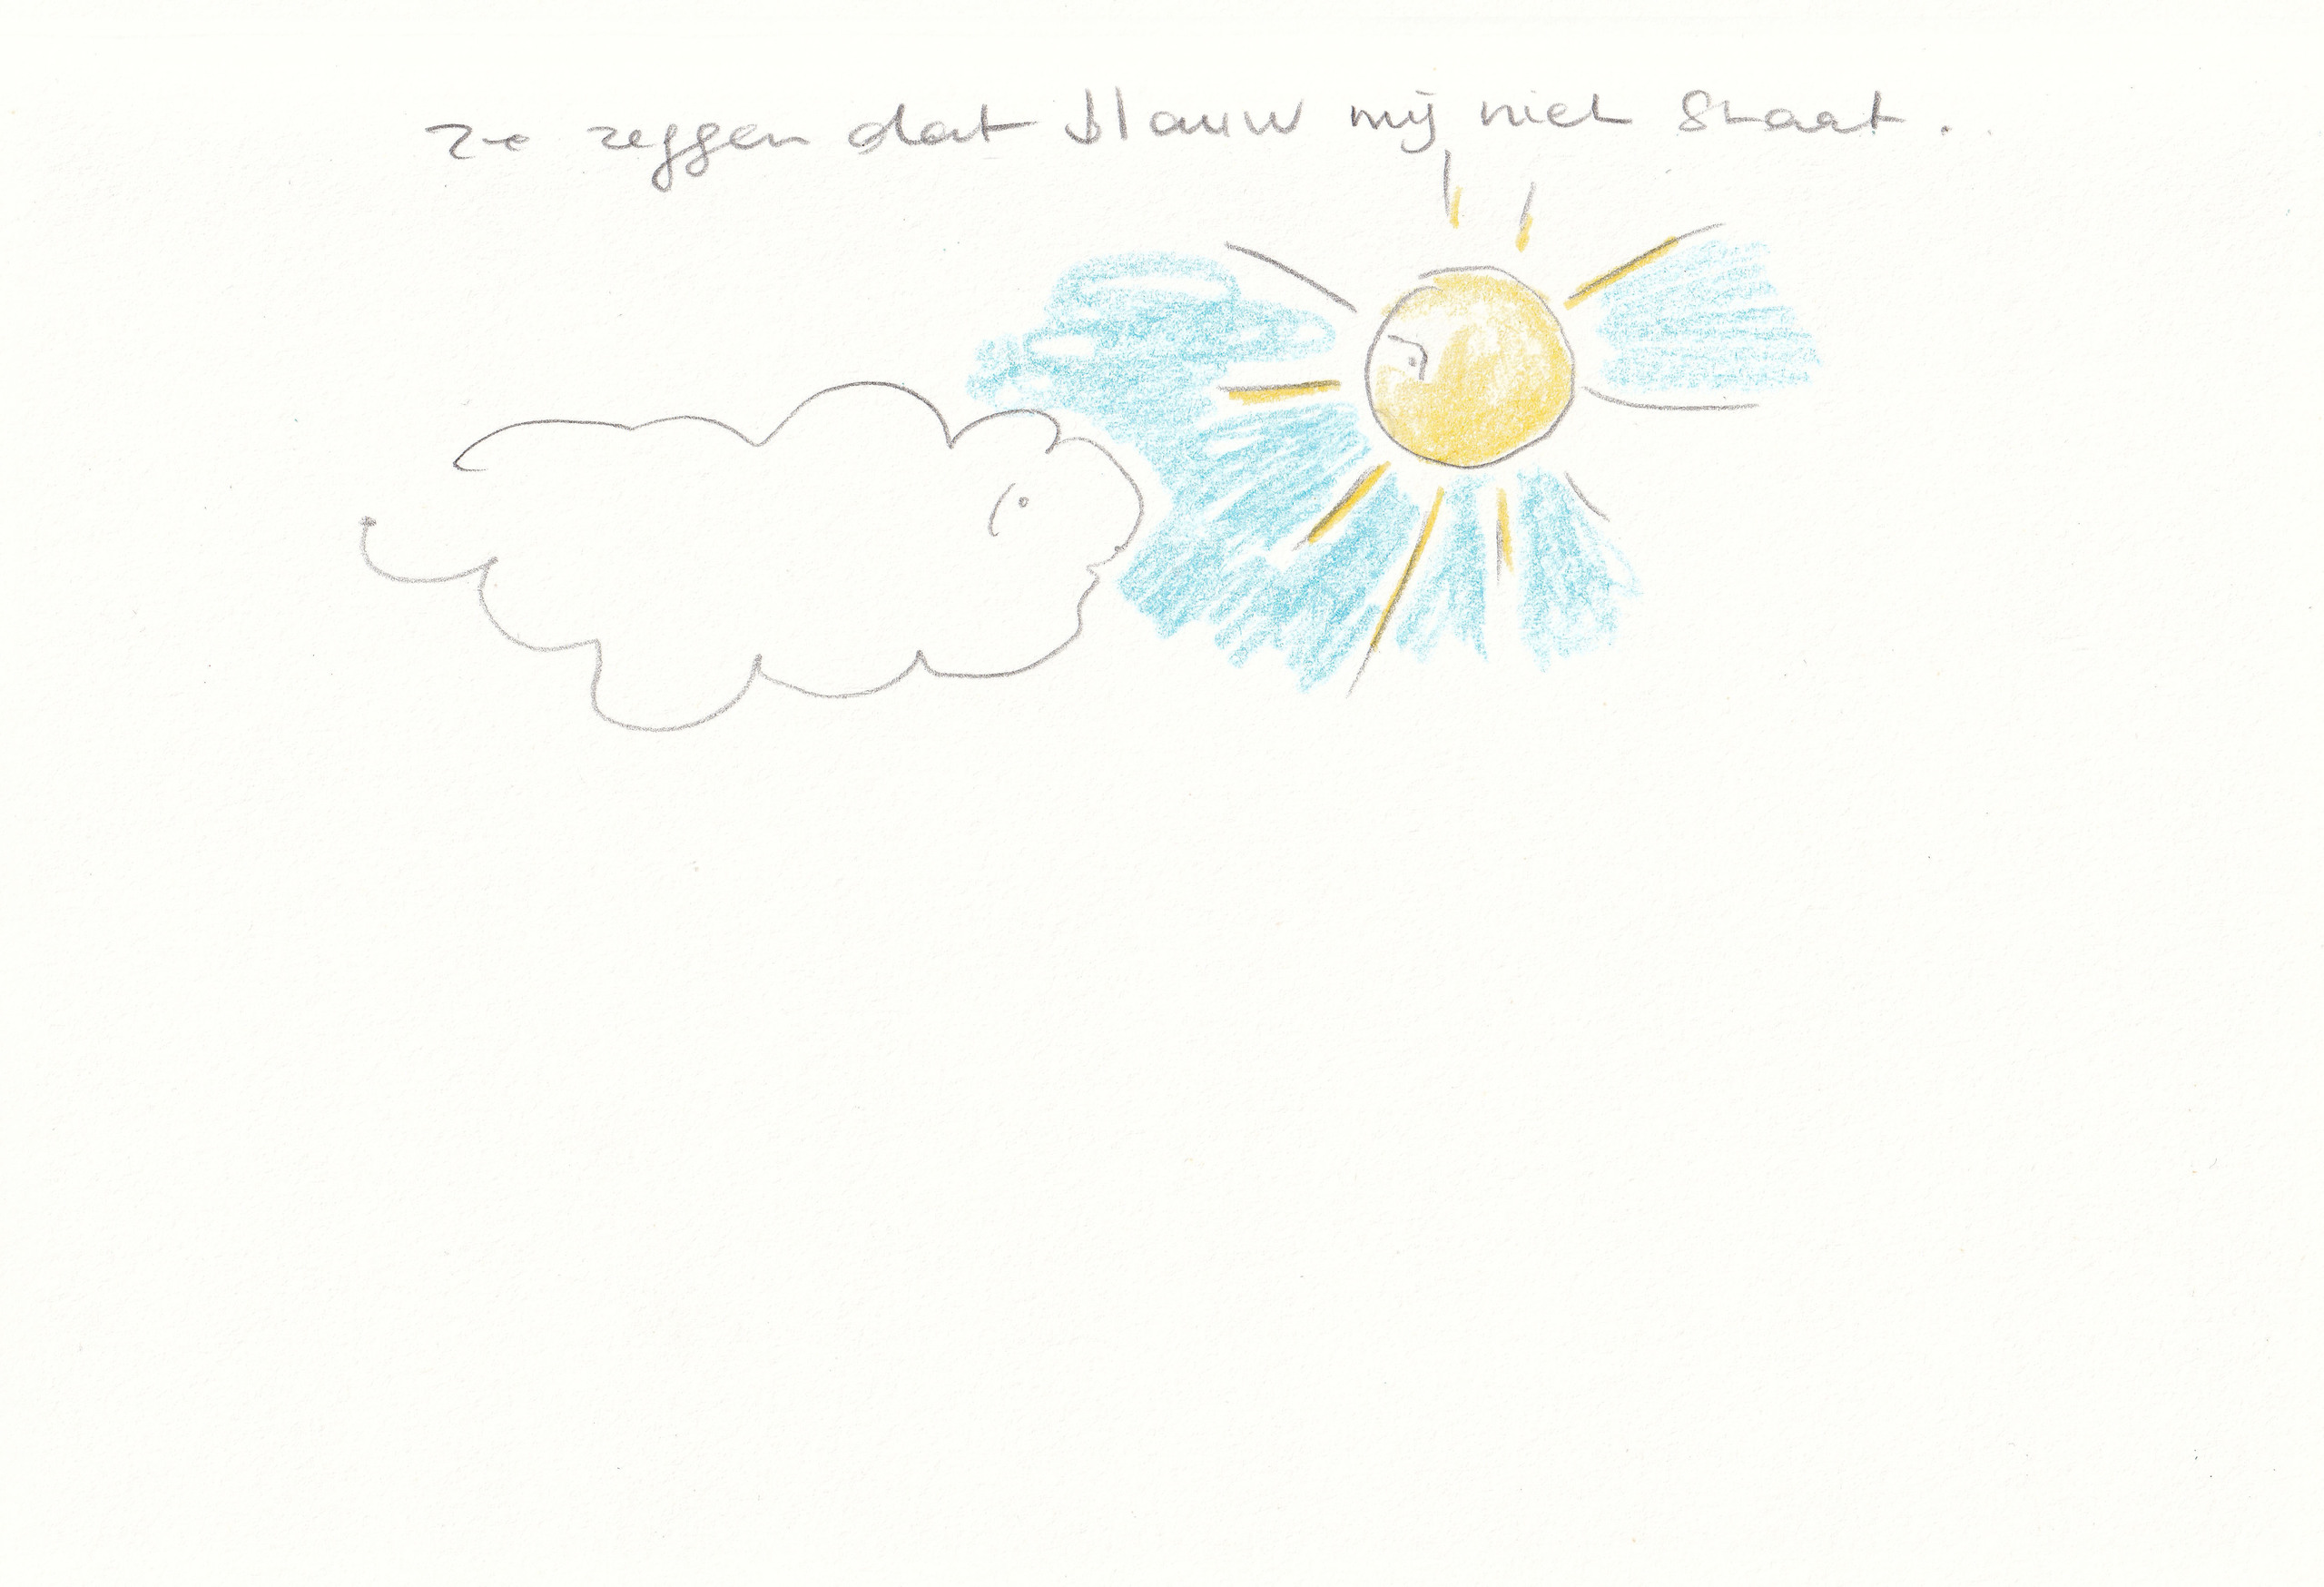 ze zeggen dat blauw mij niet staat.